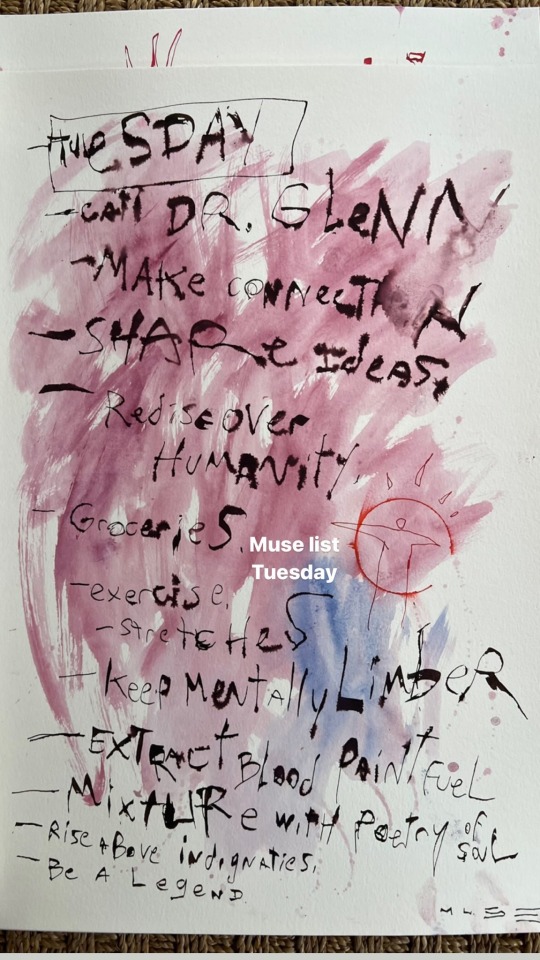 TUESDAY
- CALL DR. GLENN
- MAKE CONNECTION
- SHARe IdeAS.
- RediscOVer
HUMANity.
- GrocerieS.
Muse list
Tuesday
- exercise.
- STReTCHeS
- Keep MeNtAlly LimbeR
- EXTRAct Blood PAINT FueL
- MixTURe wiTH PoeTry of SouL
- Rise ABove indignaties.
- Be A Legend.
MUSE